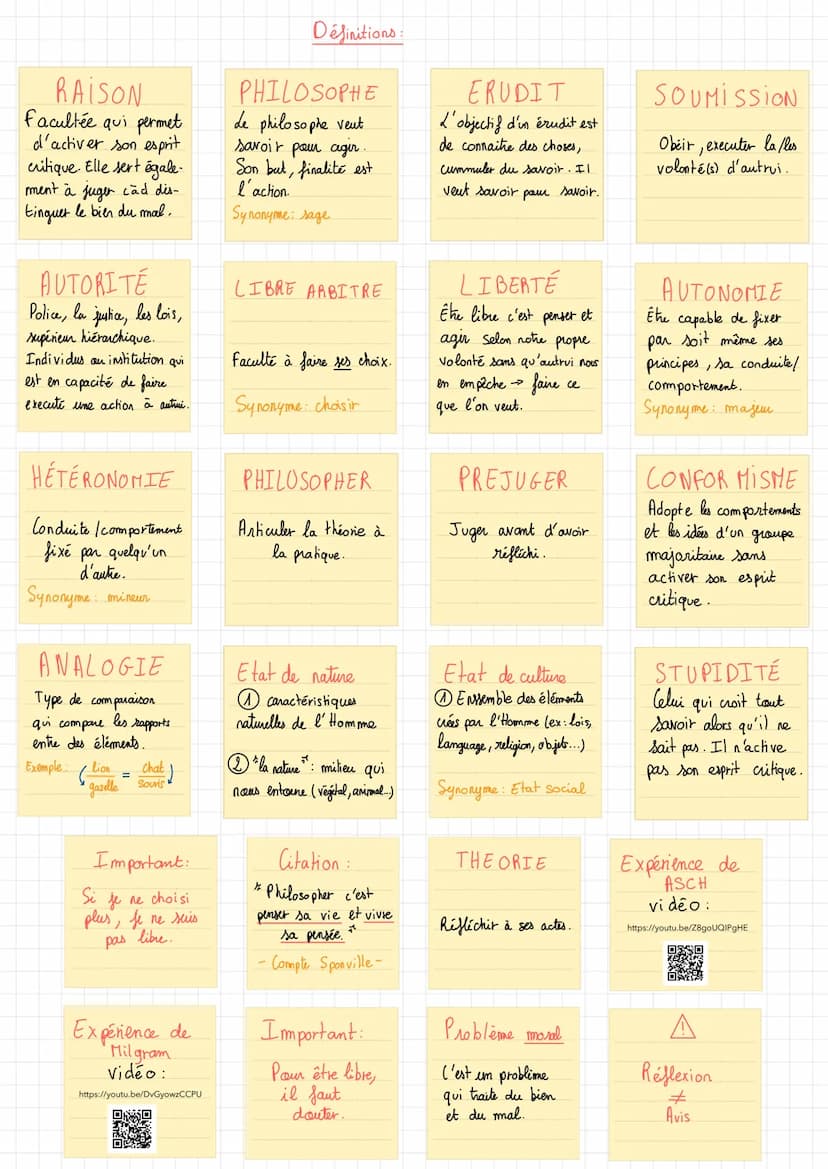 Définitions :
RAISON
Facultée qui permet
d'activer son esprit
critique. Elle sert égale-
ment à juger càd dis-
tinguer le bien du mal.
PHILOSOPHE
Le philosophe veut
savoir pour agir.
Son but, finalité est
l'action.
Synonyme : sage
ERUDIT
L'objectif d'un érudit est
de connaître des choses,
cummuler du savoir. Il
veut savoir pour savoir.
SOUMISSION
Obéir, executer la/les
volonté(s) d'autrui.
AUTORITÉ
Police, la justice, les lois,
supérieur hiérarchique.
Individus ou institution qui
est en capacité de faire
executé une action à autrui.
LIBRE ARBITRE
Faculté à faire ses choix.
Synonyme : choisir
LIBERTÉ
Être libre c'est penser et
agir selon notre propre
volonté sans qu'autrui nous
en empêche → faire ce
que l'on veut.
AUTONOMIE
Être capable de fixer
par soit même ses
principes, sa conduite/
comportement.
Synonyme : majeur
HÉTÉRONOMIE
Conduite /comportement
fixé par quelqu'un
d'autre.
Synonyme : mineur
PHILOSOPHER
Articuler la théorie à
la pratique.
PREJUGER
Juger avant d'avoir
réfléchi.
CONFORMISME
Adopte les comportements
et les idées d'un groupe
majoritaire sans
activer son esprit
critique.
ANALOGIE
Type de comparaison
qui compare les rapports
entre des éléments.
Exemple (lion = chat)
gazelle souris
Etat de nature
① caractéristiques
naturelles de l'Homme
② "la nature" : milieu qui
nous entoure (végétal, animal...)
Etat de culture
① Ensemble des éléments
créés par l'Homme (ex: lois,
language, religion, objets...)
Synonyme : Etat social
STUPIDITÉ
Celui qui croit tout
savoir alors qu'il ne
sait pas. Il n'active
pas son esprit critique.
Important :
Si je ne choisi
plus, je ne suis
pas libre.
Citation :
"Philosopher c'est
penser sa vie et vivre
sa pensée."
- Compte Sponville -
THEORIE
Réfléchir à ses actes.
Expérience de
ASCH
vidéo :
https://youtu.be/Z8goUQIPgHE
Expérience de
Milgram
Vidéo :
https://youtu.be/DvGyowzCCPU
Important :
Pour être libre,
il faut
douter.
Problème moral
C'est un problème
qui traite du bien
et du mal.
⚠
Réflexion
≠
Avis